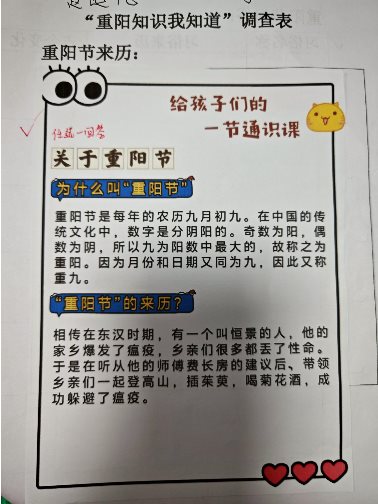 “重阳知识我知道”调查表
重阳节来历：
给孩子们的
一节通识课
任选一回答
关于重阳节
为什么叫“重阳节”
重阳节是每年的农历九月初九。在中国的传
统文化中，数字是分阴阳的。奇数为阳，偶
数为阴，所以九为阳数中最大的，故称之为
重阳。因为月份和日期又同为九，因此又称
重九。
“重阳节”的来历？
相传在东汉时期，有一个叫恒景的人，他的
家乡爆发了瘟疫，乡亲们很多都丢了性命。
于是在听从他的师傅费长房的建议后、带领
乡亲们一起登高山，插茱萸，喝菊花酒，成
功躲避了瘟疫。